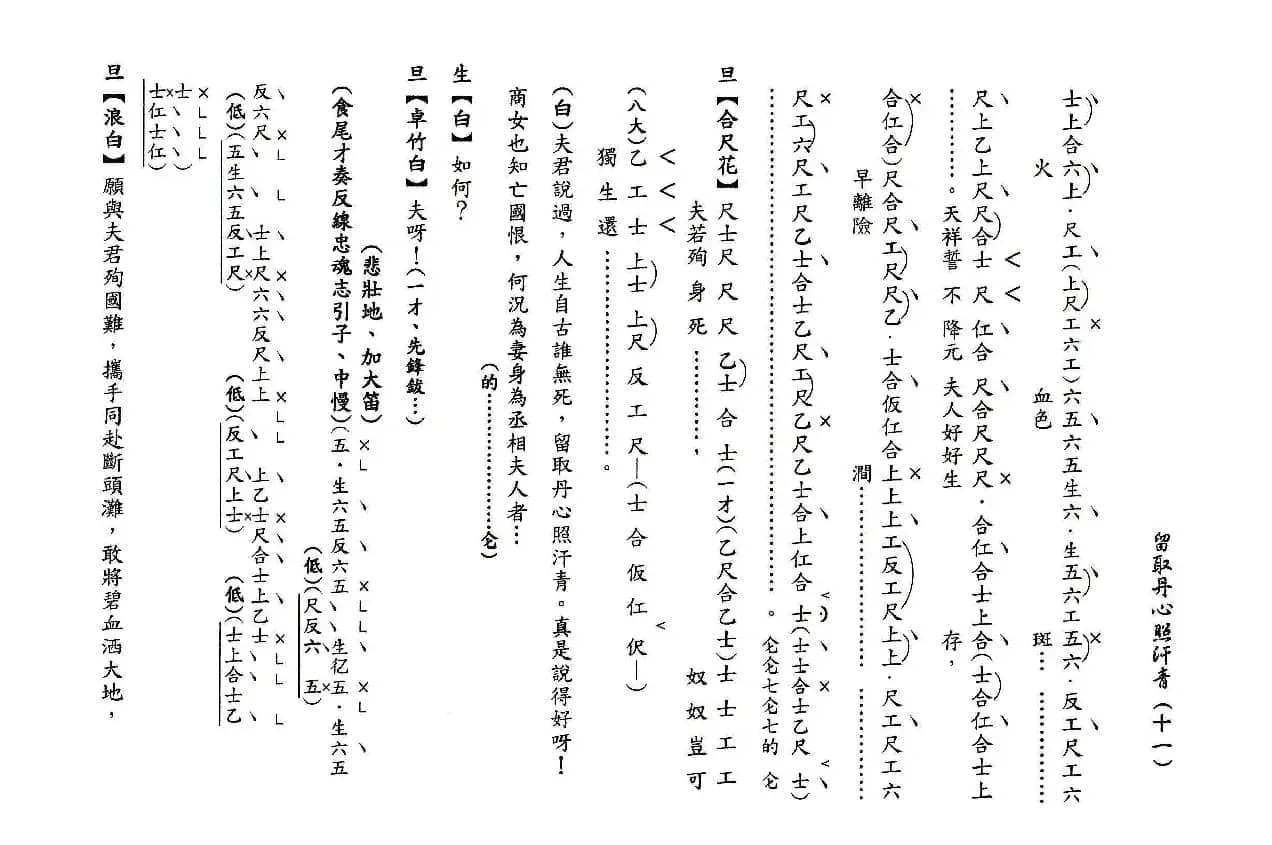 留取丹心照汗青（十一）
士上合六上．尺工（上尺工六工）六五六五生六．生五六工五六．反工尺工六
火　血色　斑…………………
尺上乙上尺尺合士尺仜合尺合尺尺尺．合仜合士上合（士合仜合士上
…………………。天祥誓不降元　夫人好好生　存，
合仜合）尺合尺工尺尺乙．士合仮仜合上上上工反工尺上上．尺工尺工六
早離險　澗…………………
尺工六尺工尺乙士合士乙尺工尺乙尺乙士合上仜合士（士士合士乙尺士）
…………………。仑仑七仑七的仑
旦【合尺花】尺士尺尺尺乙士合士（一才）（乙尺合乙士）士士工工
夫若殉身死…………，　奴奴豈可
（八大）乙工士上士上尺反工尺—（士合仮仜伬—）
獨生還…………………。
（白）夫君說過，人生自古誰無死，留取丹心照汗青。真是說得好呀！
商女也知亡國恨，何況為妻身為丞相夫人者…
（的…………………仑）
生【白】如何？
旦【卓竹白】夫呀！（一才、先鋒鈸…）
（悲壯地、加大笛）
（食尾才奏反線忠魂志引子、中慢）（五．生六五反六五生亿五．生六五
（低）（尺反六五）
反六尺　士上尺六六反尺上上　上乙士尺合士上乙士
（低）（五生六五反工尺）　（低）（反工尺上士）　（低）（士上合士乙
士
士仜士仜）
旦【浪白】願與夫君殉國難，攜手同赴斷頭灘，敢將碧血洒大地，